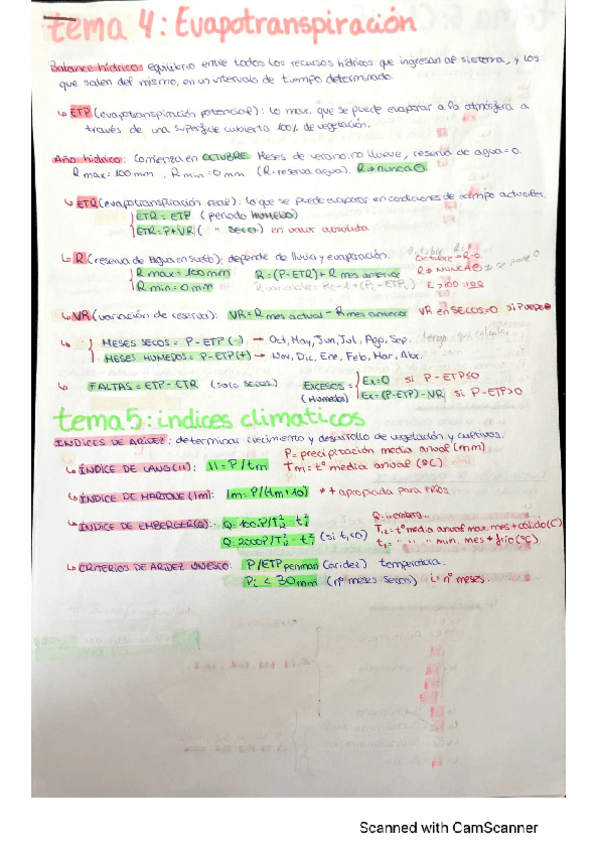 tema 4: Evapotranspiración
Balance hídrico: equilibrio entre todos los recursos hídricos que ingresan al sistema, y los
que salen del mismo, en un intervalo de tiempo determinado.
↳ ETP (evapotranspiración potencial): lo max. que se puede evaporar a la atmósfera a
través de una superficie cubierta 100% de vegetación.
Año hídrico: Comienza en OCTUBRE. Meses de verano: no llueve, reserva de agua=0.
R max=100mm, R min=0mm (R=reserva agua). R→nunca ⊖
↳ ETR (evapotranspiración real): lo que se puede evaporar en condiciones de campo actuales.
ETR = ETP (periodo HUMEDO)
ETR=P+VR( " SECO) en valor absoluto
↳ R (reserva de Agua en suelo): depende de lluvia y evaporación.
Octubre→R=0
R max=100mm R=(P-ETR)+R mes anterior R→NUNCA⊖
R min=0mm
↳ VR (variación de reserva): VR=R mes actual - R mes anterior VR en SECOS=0 si Puede⊖
↳ MESES SECOS = P-ETP (-) → Oct, May, Jun, Jul, Ago, Sep.
MESES HUMEDOS = P-ETP(+) → Nov, Dic, Ene, Feb, Mar, Abr.
↳ FALTAS=ETP-ETR (solo secos) EXCESOS= Ex=0 si P-ETP≤0
(Humedos) Ex=(P-ETP)-VR si P-ETP>0
tema 5: indices climaticos
INDICES DE ARIDEZ: determinar crecimiento y desarrollo de vegetación y cultivos.
P= precipitación media anual (mm)
↳ ÍNDICE DE LANG (Il): Il=P/tm Tm= tº media anual (ºC)
↳ ÍNDICE DE MARTONE (Im): Im=P/(tm+10) *+ apropiada para fríos
↳ ÍNDICE DE EMBERGER(Q): Q=100·P/T₁₂² - t₁² T₁₂=tº media anual max. mes + cálido(C)
Q=2000P/T₁₂² - t₁² (si t₁<0) " " " min. mes + frío (ºC)
↳ CRITERIOS DE ARIDEZ UNESCO: P/ETP penman (aridez) temperatura.
Pi < 30mm (nº meses secos) i=nº meses.
Scanned with CamScanner